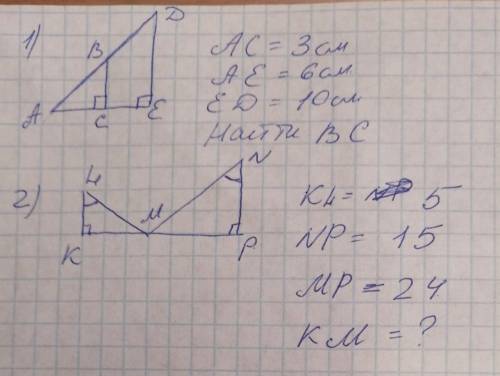 1)
D
B
A
C
E
AC = 3см
AE = 6см
ED = 10см
Найти BC
2)
L
M
N
K
P
KL = 5
NP = 15
MP = 24
KM = ?